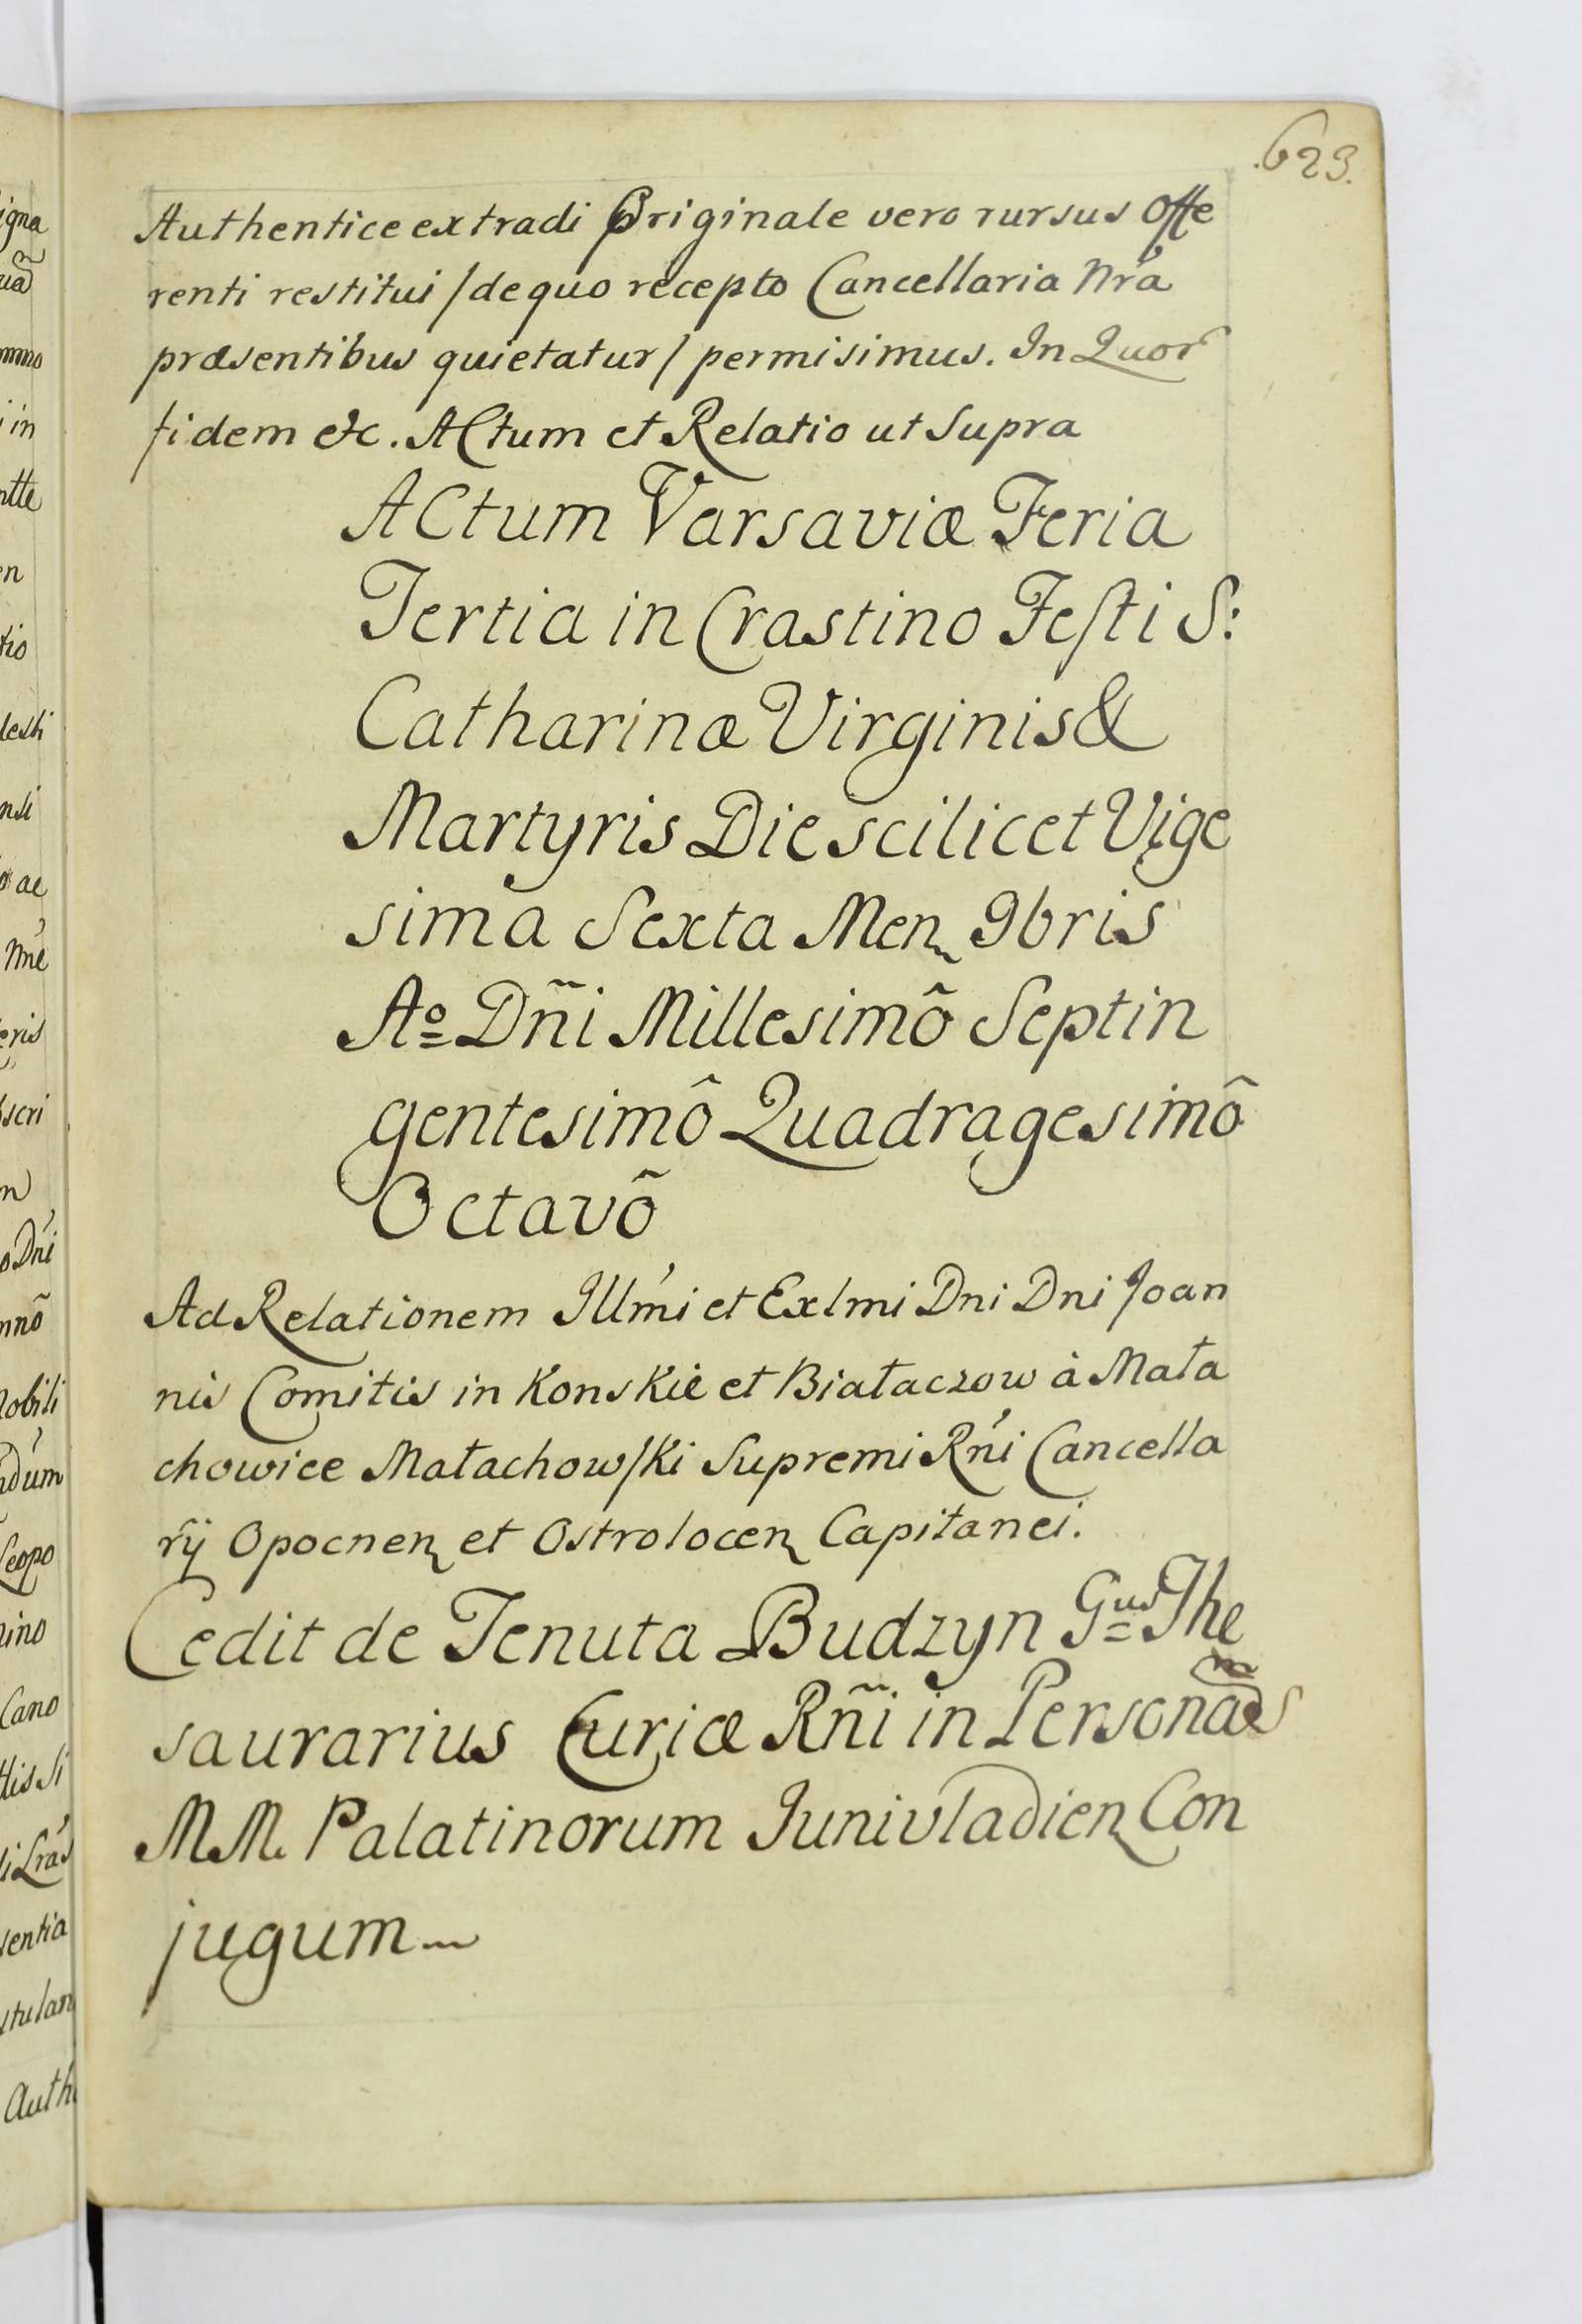 .623.
Authentice extradi Originale vero rursus Offe
renti restitui /de quo recepto Cancellaria Nrá
præsentibus quietatur/ permisimus. In Quor
fidem etc. Actum et Relatio ut Supra
ACtum Varsaviæ Feria
Tertia in Crastino Feſti S:
Catharinæ Virginis &
Martyris Die scilicet Vige
sima Sexta Men 9bris
Aº Dñi Millesimô Septin
gentesimô Quadragesimô
Octavô
Ad Relationem Illḿi et Exlmi Dni Dni Joan
nis Comitis in Konskie et Białaczow à Mała
chowice Małachowſki Supremi Rńi Cancella
rij Opocnen et Ostrolocen Capitanei.
Cedit de Tenuta Budzyn Gus The
saurarius Curiæ Rñi in Personas
MM. Palatinorum Junivladien Con
jugum